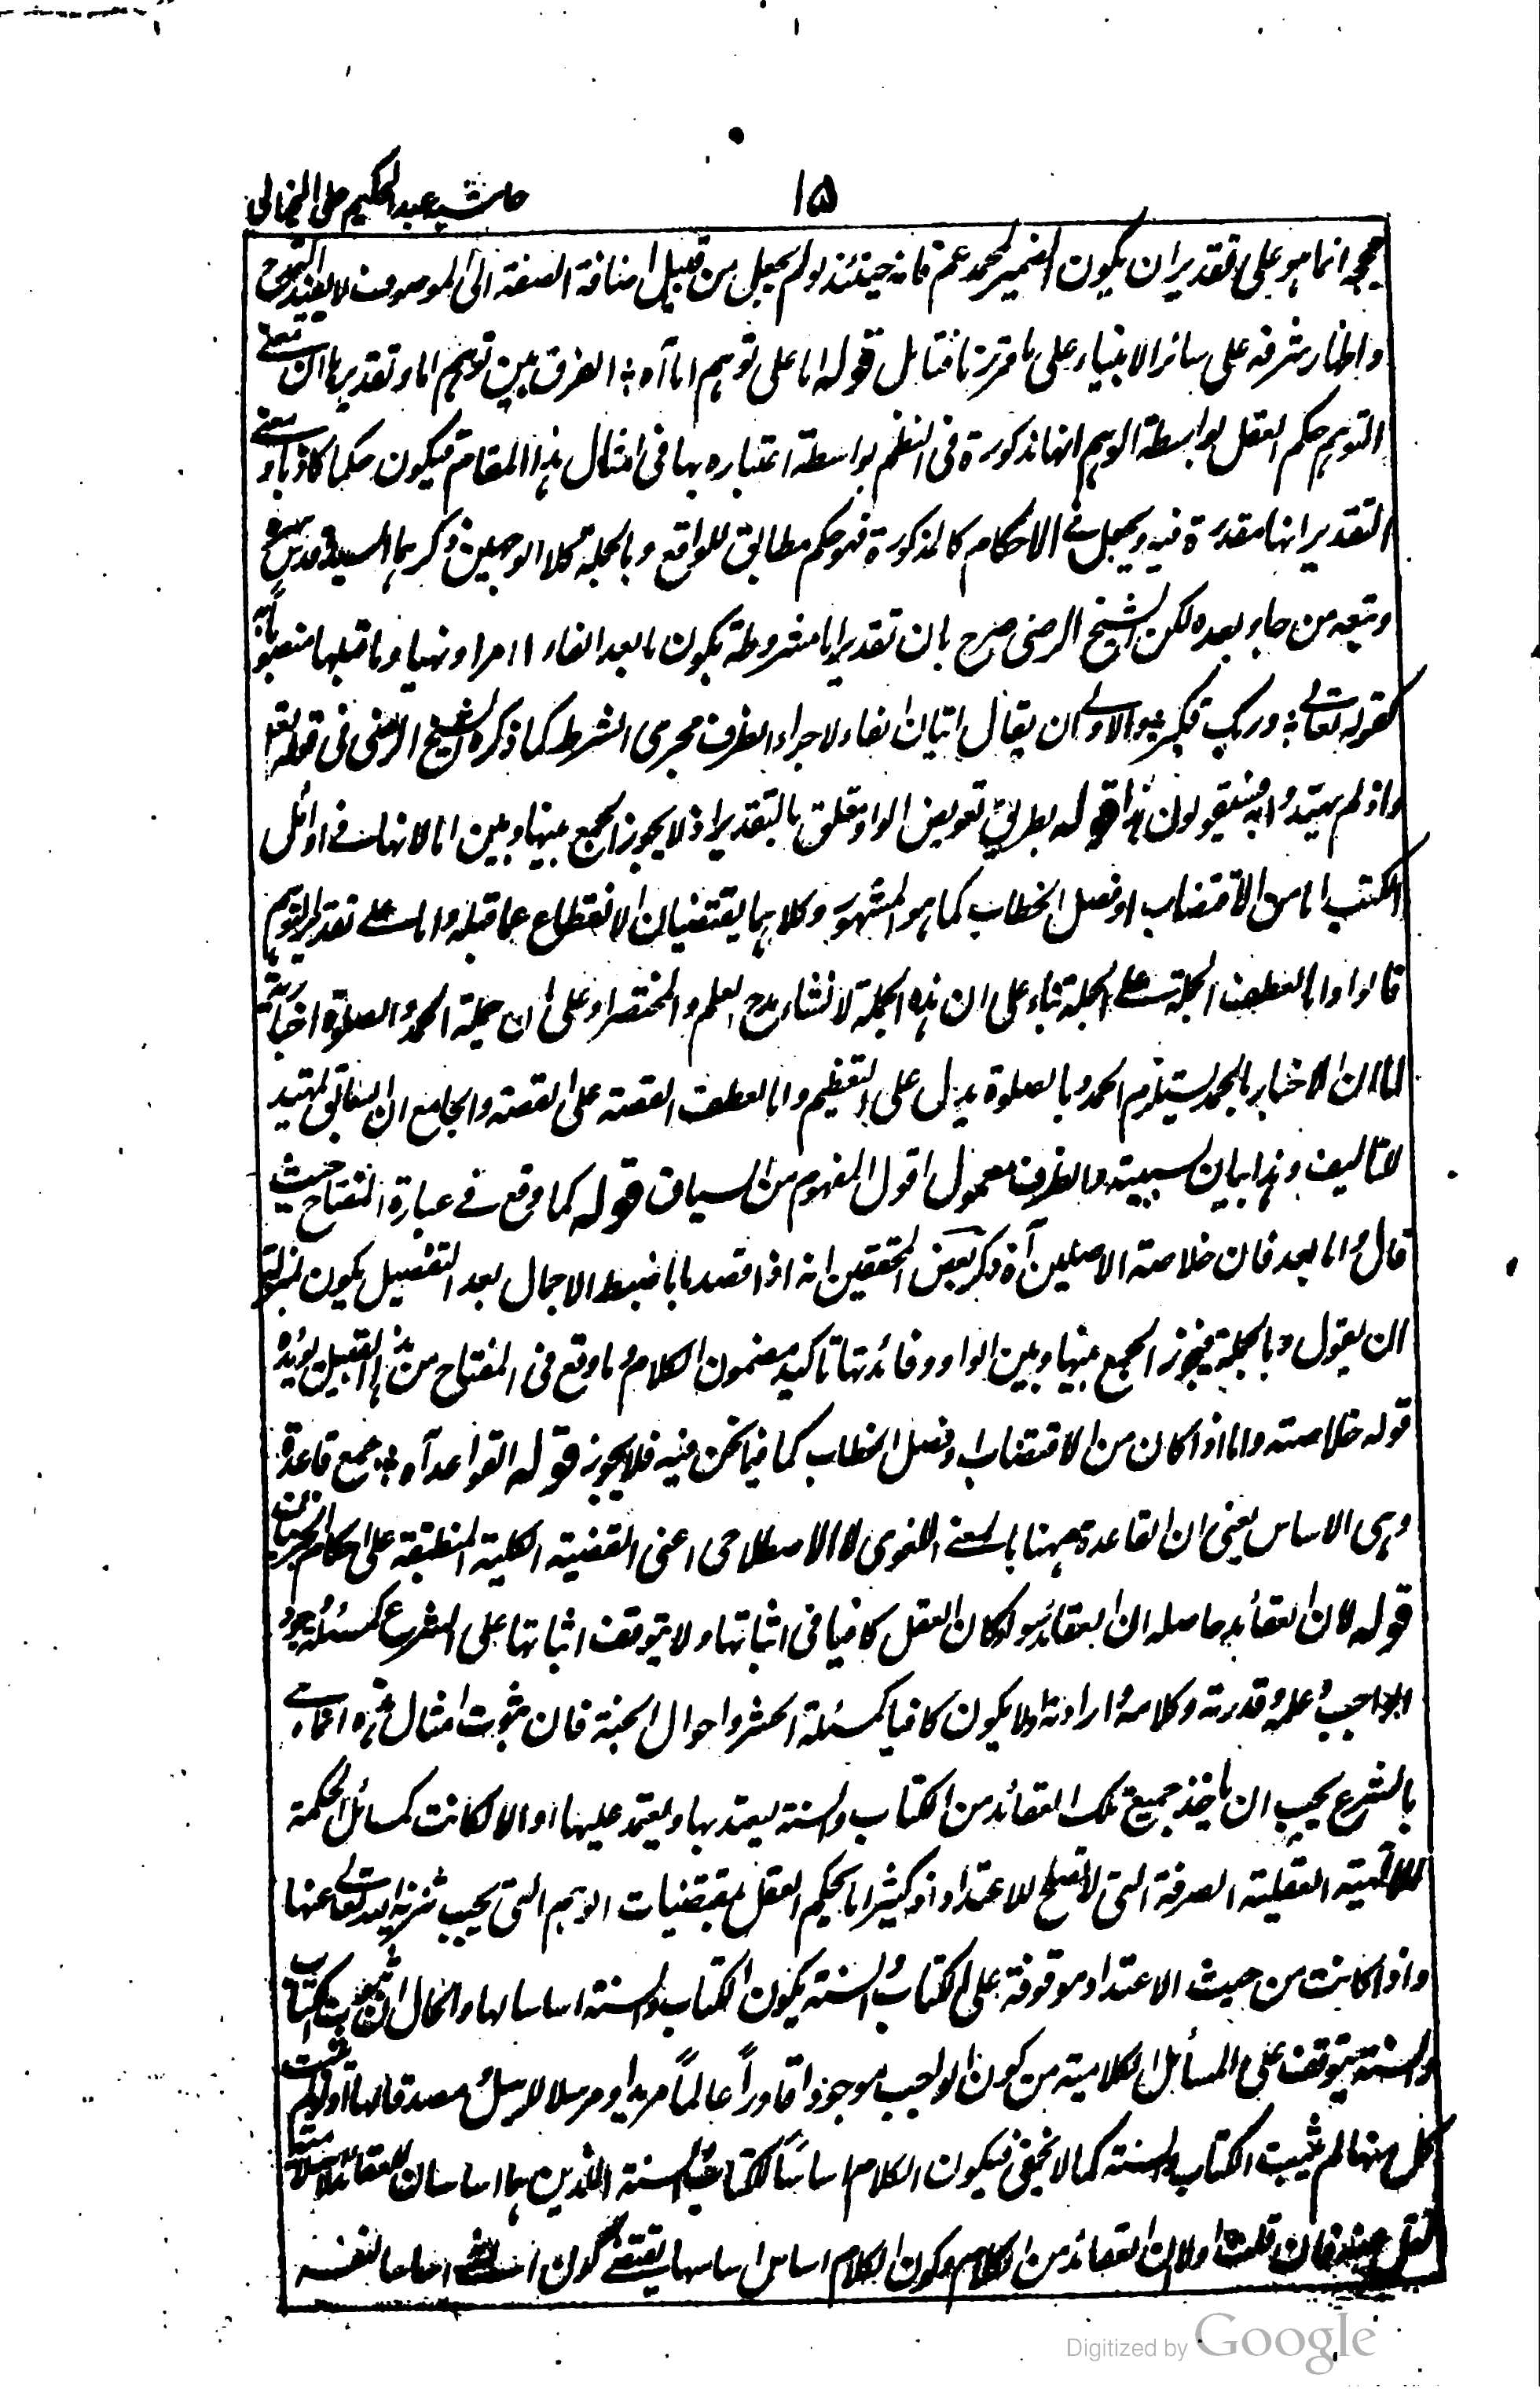 ١٥
حاشیہ عبدالحکیم علی الخیالی
حججه انما هو على تقدير ان يكون الضمير لمحمد عم فانه حينئذ لو لم يجعل من قبيل اضافة الصفة الى الموصوف لا يفيد المدح
واظهار شرفه على سائر الانبياء على ما قررنا فتامل قوله اما على توهم اما آه الفرق بين توهم اما وتقديرها ان معنى
التوهم حكم العقل بواسطة الوهم انها مذكورة فى النظم بواسطة اعتباره بها فى امثال هذا المقام فيكون حكما كاذبا ومعنى
التقدير انها مقدرة فيه ويجعل فى الاحكام كالمذكورة فهو حكم مطابق للواقع وبالجملة كلا الوجهين ذكرهما السيد قدس سره
وتبعه من جاء بعده لكن الشيخ الرضى صرح بان تقدير اما مشروطة بكون ما بعد الفاء امرا ونهيا وما قبلها منصوبا به
كقوله تعالى وربك فكبر والاولى ان يقال اتيان الفاء لاجراء الظرف مجرى الشرط كما ذكره الشيخ الرضى فى قوله تعالى
واذ لم يهتدوا به فسيقولون هذا قوله بطريق تعويض الواو متعلق بالتقدير اذ لا يجوز الجمع بينها وبين اما لانها فى اوائل
الكتب اما من الاقتضاب او فصل الخطاب كما هو المشهور وكلاهما يقتضيان الانقطاع عما قبله واما على تقدير التوهم
قالوا واما لعطف الجملة على الجملة بناء على ان هذه الجملة لانشاء مدح العلم والمختصر او على ان جملة الحمد والصلوة اخبارية
لما ان الاخبار بالحمد يستلزم الحمد وبالصلوة يدل على التعظيم واما لعطف القصة على القصة والجامع ان السابق تمهيد
للتاليف وهذا بيان لسببيته والظرف معمول اقول المفهوم من السياق قوله كما وقع فى عبارة المفتاح حيث
قال واما بعد فان خلاصة الاصلين آه ذكر بعض المحققين انه اذا قصد باما ضبط الاجمال بعد التفصيل يكون بمنزلة
ان يقول وبالجملة فيجوز الجمع بينها وبين الواو وفائدتها تاكيد مضمون الكلام وما وقع فى المفتاح من هذا القبيل يؤيده
قوله خلاصته واما اذا كان من الاقتضاب او فصل الخطاب كما فيما نحن فيه فلا يجوز قوله القواعد آه جمع قاعدة
وهى الاساس يعنى ان القاعدة ههنا بالمعنى اللغوى لا الاصطلاحى اعنى القضية الكلية المنطبقة على احكام الجزئيات
قوله لان العقائد حاصله ان العقائد سواء كان العقل كافيا فى اثباتها ولا يتوقف اثباتها على الشرع كمسئلة وجود
الواجب وعلمه وقدرته وكلامه وارادته او لا يكون كافيا كمسئلة الحشر واحوال الجنة فان ثبوت امثال هذه انما هى
بالشرع يجب ان ياخذ جميع تلك العقائد من الكتاب والسنة ليعتد بها ويعتمد عليها او الا لكانت كمسائل الحكمة
الالهية العقلية الصرفة التى لا تصلح للاعتداد اذ كثيرا ما يحكم العقل بمقتضيات الوهم التى يجب تنزيه الله تعالى عنها
واذا كانت من حيث الاعتداد موقوفة على الكتاب والسنة يكون الكتاب والسنة اساسا لها والحال ان ثبوت الكتاب
والسنة يتوقف على المسائل الكلامية من كون الواجب موجودا قادراً عالماً مريدا ومرسلا للرسل ومصدقا لها اذ لو لم يثبت
كل منها لم يثبت الكتاب والسنة كما لا يخفى فيكون الكلام اساسا للكتاب والسنة اللذين هما اساسان للعقائد الاسلامية
فان قلت اولا ان العقائد من الكلام وكون الكلام اساس اساسها يقتضى كون الشئ اساسا لنفسه
Digitized by Google